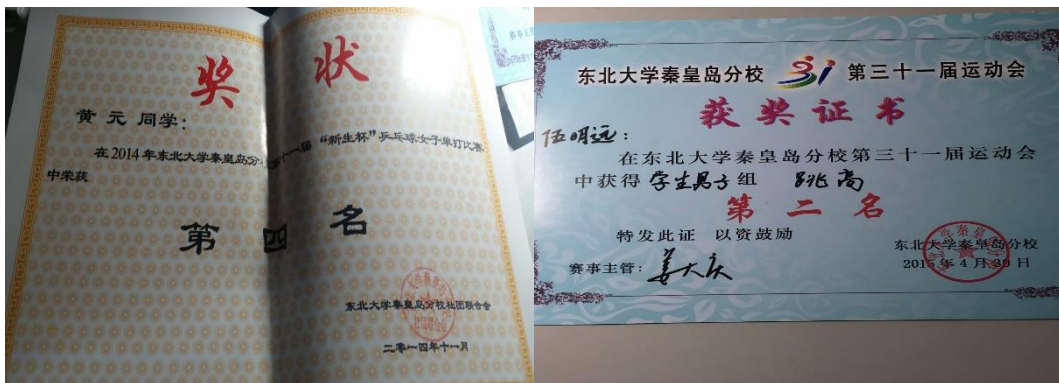 奖状
黄元同学：
在2014年东北大学秦皇岛分 十一届“新生杯”乒乓球女子单打比赛
中荣获
第四名
东北大学秦皇岛分校社团联合会
二零一四年十一月
东北大学秦皇岛分校 31 第三十一届运动会
获奖证书
伍明远：
在东北大学秦皇岛分校第三十一届运动会
中获得 学生男子 组 跳高
第二名
特发此证 以资鼓励
东北大学秦皇岛分校
赛事主管：姜大庆
2015年4月30日